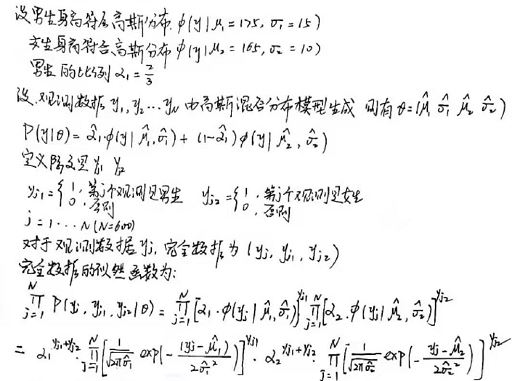 设男生身高符合高斯分布 φ(y|μ₁=175, σ₁=15)
女生身高符合高斯分布 φ(y|μ₂=165, σ₂=10)
男生的比例 α₁=2/3
设.观测数据 y₁, y₂…yN 由高斯混合分布模型生成 则有 θ=(μ̂₁ σ̂₁ μ̂₂ σ̂₂)
P(y|θ)= α̂₁·φ(y|μ̂₁,σ̂₁)+(1-α̂₁)φ(y|μ̂₂,σ̂₂)
定义隐变量 γ₁ γ₂
γj1={1, 第j个观测是男生 0, 否则 γj2={1, 第j个观测是女生 0, 否则
j=1…N (N=600)
对于观测数据 yj, 完全数据为 (yj, γj1, γj2)
完全数据的似然函数为:
∏_{j=1}^{N} P(yj, γj1, γj2|θ) = ∏_{j=1}^{N}[α₁·φ(yj|μ̂₁,σ̂₁)]^{γj1} ∏_{j=1}^{N}[α₂·φ(yj|μ̂₂,σ̂₂)]^{γj2}
= α₁^{γj1+γj2}·∏_{j=1}^{N}[1/(√2π σ̂₁) exp(-(yj-μ̂₁)/(2σ̂₁²))]^{γj1}·α₂^{γj1+γj2}·∏_{j=1}^{N}[1/(√2π σ̂₂) exp(-(yj-μ̂₂)/(2σ̂₂²))]^{γj2}